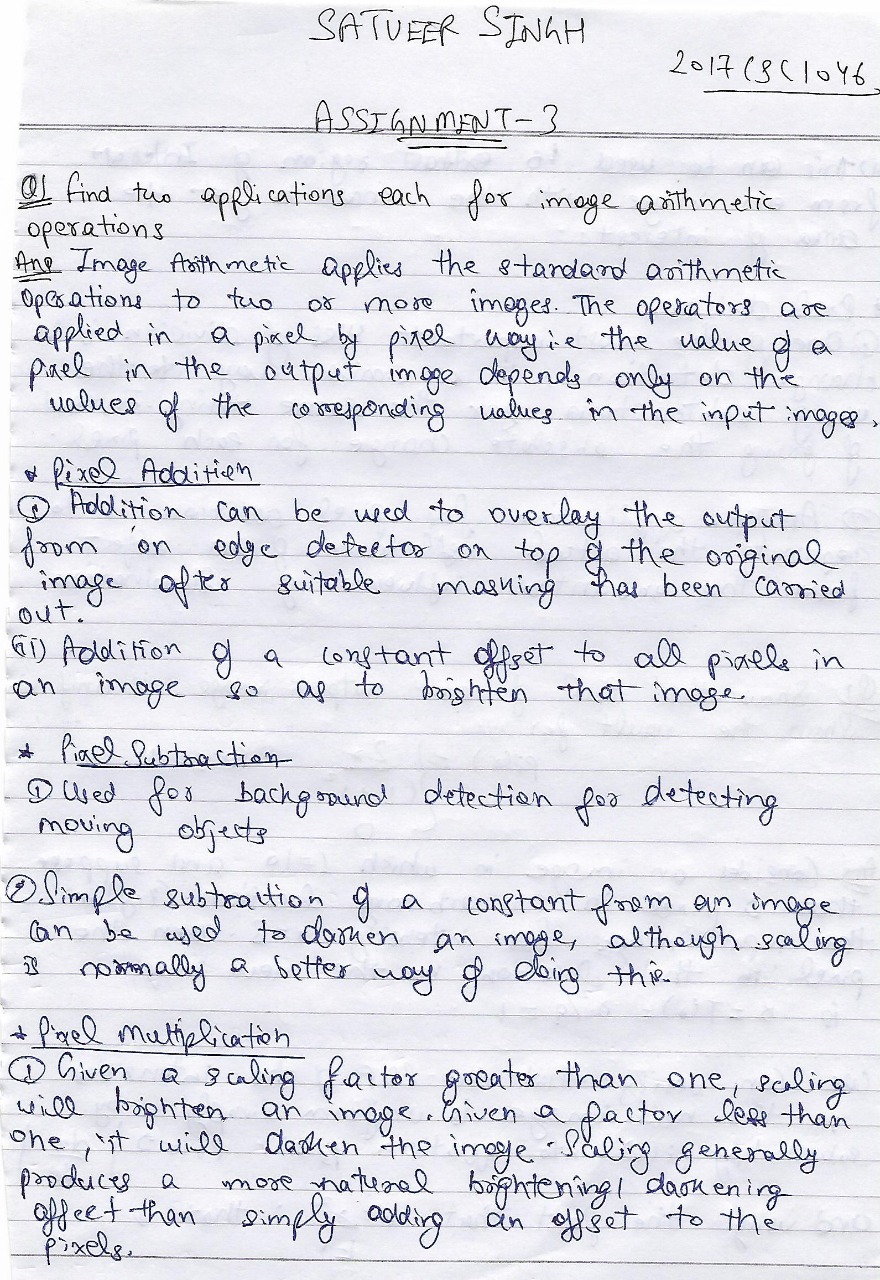 SATVEER SINGH
2017CSC1046
ASSIGNMENT-3
Q1 find two applications each for image arithmetic
operations
Ans Image Arithmetic applies the standard arithmetic
operations to two or more images. The operators are
applied in a pixel by pixel way i.e the value of a
pixel in the output image depends only on the
values of the corresponding values in the input images.
* Pixel Addition
① Addition can be used to overlay the output
from an edge detector on top of the original
image after suitable masking has been carried
out.
(ii) Addition of a constant offset to all pixels in
an image so as to brighten that image.
* Pixel Subtraction
① Used for background detection for detecting
moving objects
② Simple subtraction of a constant from an image
can be used to darken an image, although scaling
is normally a better way of doing this.
* Pixel Multiplication
① Given a scaling factor greater than one, scaling
will brighten an image. Given a factor less than
one, it will darken the image. Scaling generally
produces a more natural brightening/ darkening
affect than simply adding an offset to the
pixels.